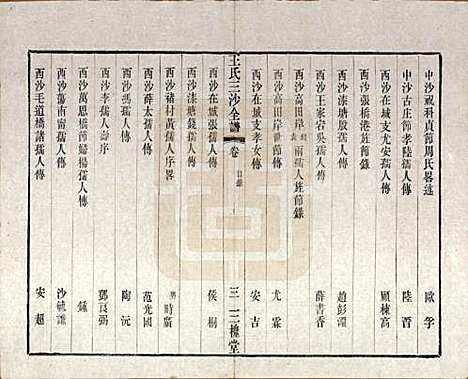 中沙觀科貞節周氏畧述 歐孚
中沙古庄節孝陸孺人傳 陸晋
西沙在城支尤安孺人傳 顧棟高
西沙張橋港旌節錄
西沙漆塘殷孺人傳 趙彭淵
西沙王家岩吳孺人傳 薛書香
西沙高田岸 兩孺人旌節錄
西沙高田岸 節傳 尤霖
西沙在城支孝女傳 安吉
王氏三沙全譜
卷
目錄
三 三槐堂
西沙在城張孺人傳 侯桐
西沙漆塘錢孺人傳
西沙褚村黃孺人序畧 男 時廣
西沙薛太孺人傳 范光國
西沙馮孺人傳 陶沅
西沙李孺人壽序 鄧良弼
西沙萬思橋節婦楊孺人傳 鍾
西沙蕩南甯孺人傳 沙毓謙
西沙毛道橋諸孺人傳 安超